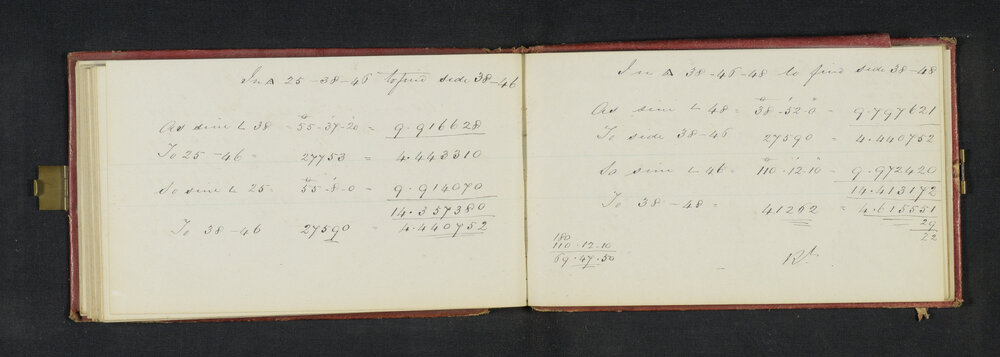 In △ 25-38-46 to find side 38-46
As sine ∠ 38 = 55°-37'-20" = 9.916628
To 25-46 = 27753 = 4.443310
So sine ∠ 25 = 55°-8'-0" = 9.914070
14.357380
To 38-46 27590 = 4.440752
In △ 38-46-48 to find side 38-48
As sine ∠ 48 = 38°-52'-0" = 9.797621
To side 38-46 27590 = 4.440752
So sine ∠ 46 = 110°-12'-10" = 9.972420
14.413172
To 38-48 = 41262 = 4.615551
29
22
180
110.12.10
69.47.50